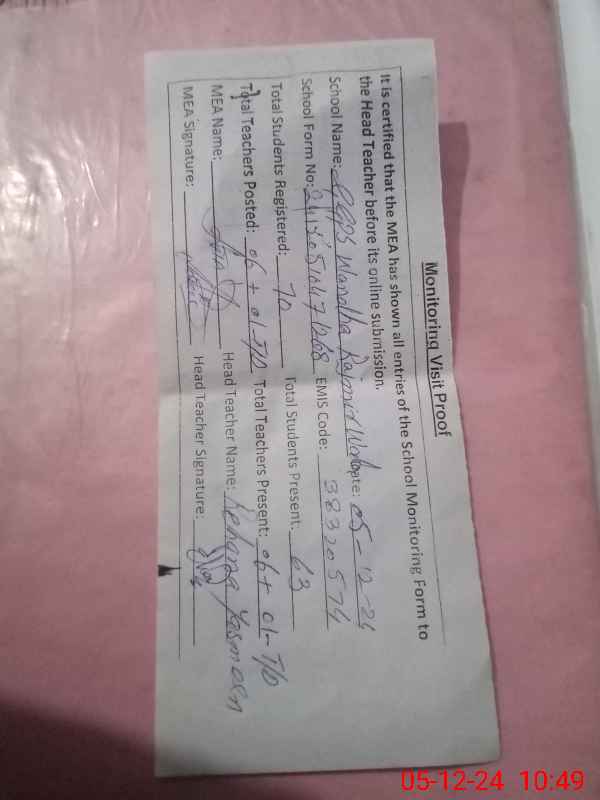 Monitoring Visit Proof
It is certified that the MEA has shown all entries of the School Monitoring Form to
the Head Teacher before its online submission.
School Name: GGPS Wandha Rajmir Date: 05-12-24
School Form No: EMIS Code: 38320574
Total Students Registered: 70 Total Students Present: 63
Total Teachers Posted: 06 + 01-T/D Total Teachers Present: 06 + 01-T/D
MEA Name: Head Teacher Name: Rehana Yasmeen
MEA Signature: Head Teacher Signature:
05-12-24 10:49